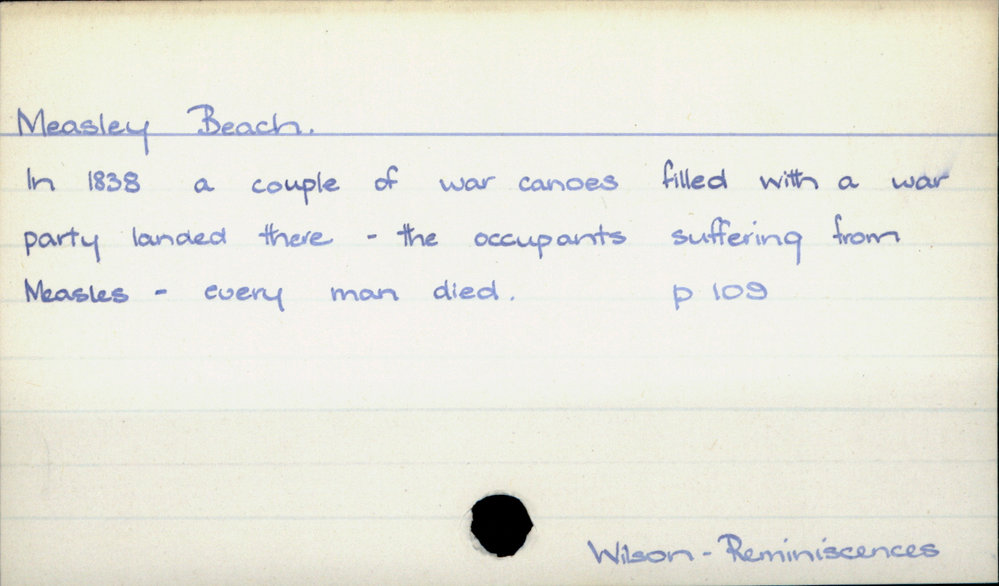 Measley Beach.
In 1838 a couple of war canoes filled with a war
party landed there - the occupants suffering from
Measles - every man died. p 109
Wilson - Reminiscences